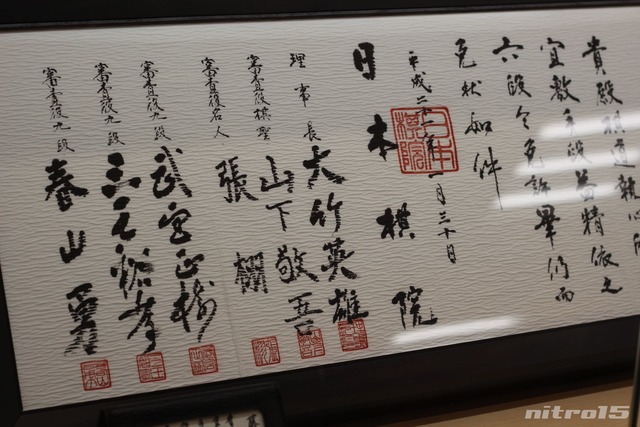 貴殿棋道執心所
宜敷手段益精依之
六段令免許畢仍而
免状如件
平成二十一年一月三十日
日本棋院
日本棋院
理事長 大竹英雄
審査役棋聖 山下敬吾
審査役名人 張栩
審査役九段 武宮正樹
審査役九段 三王裕孝
審査役九段 春山勇
nitro15